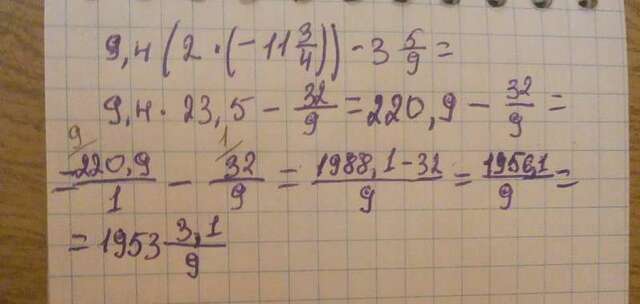 9,4(2·(-11 3/4))-3 5/9=
9,4·23,5-32/9=220,9-32/9=
=-220,9/1 9/ - 32/9 1/ = 1988,1-32/9 = 1956,1/9 =
=1953 3,1/9